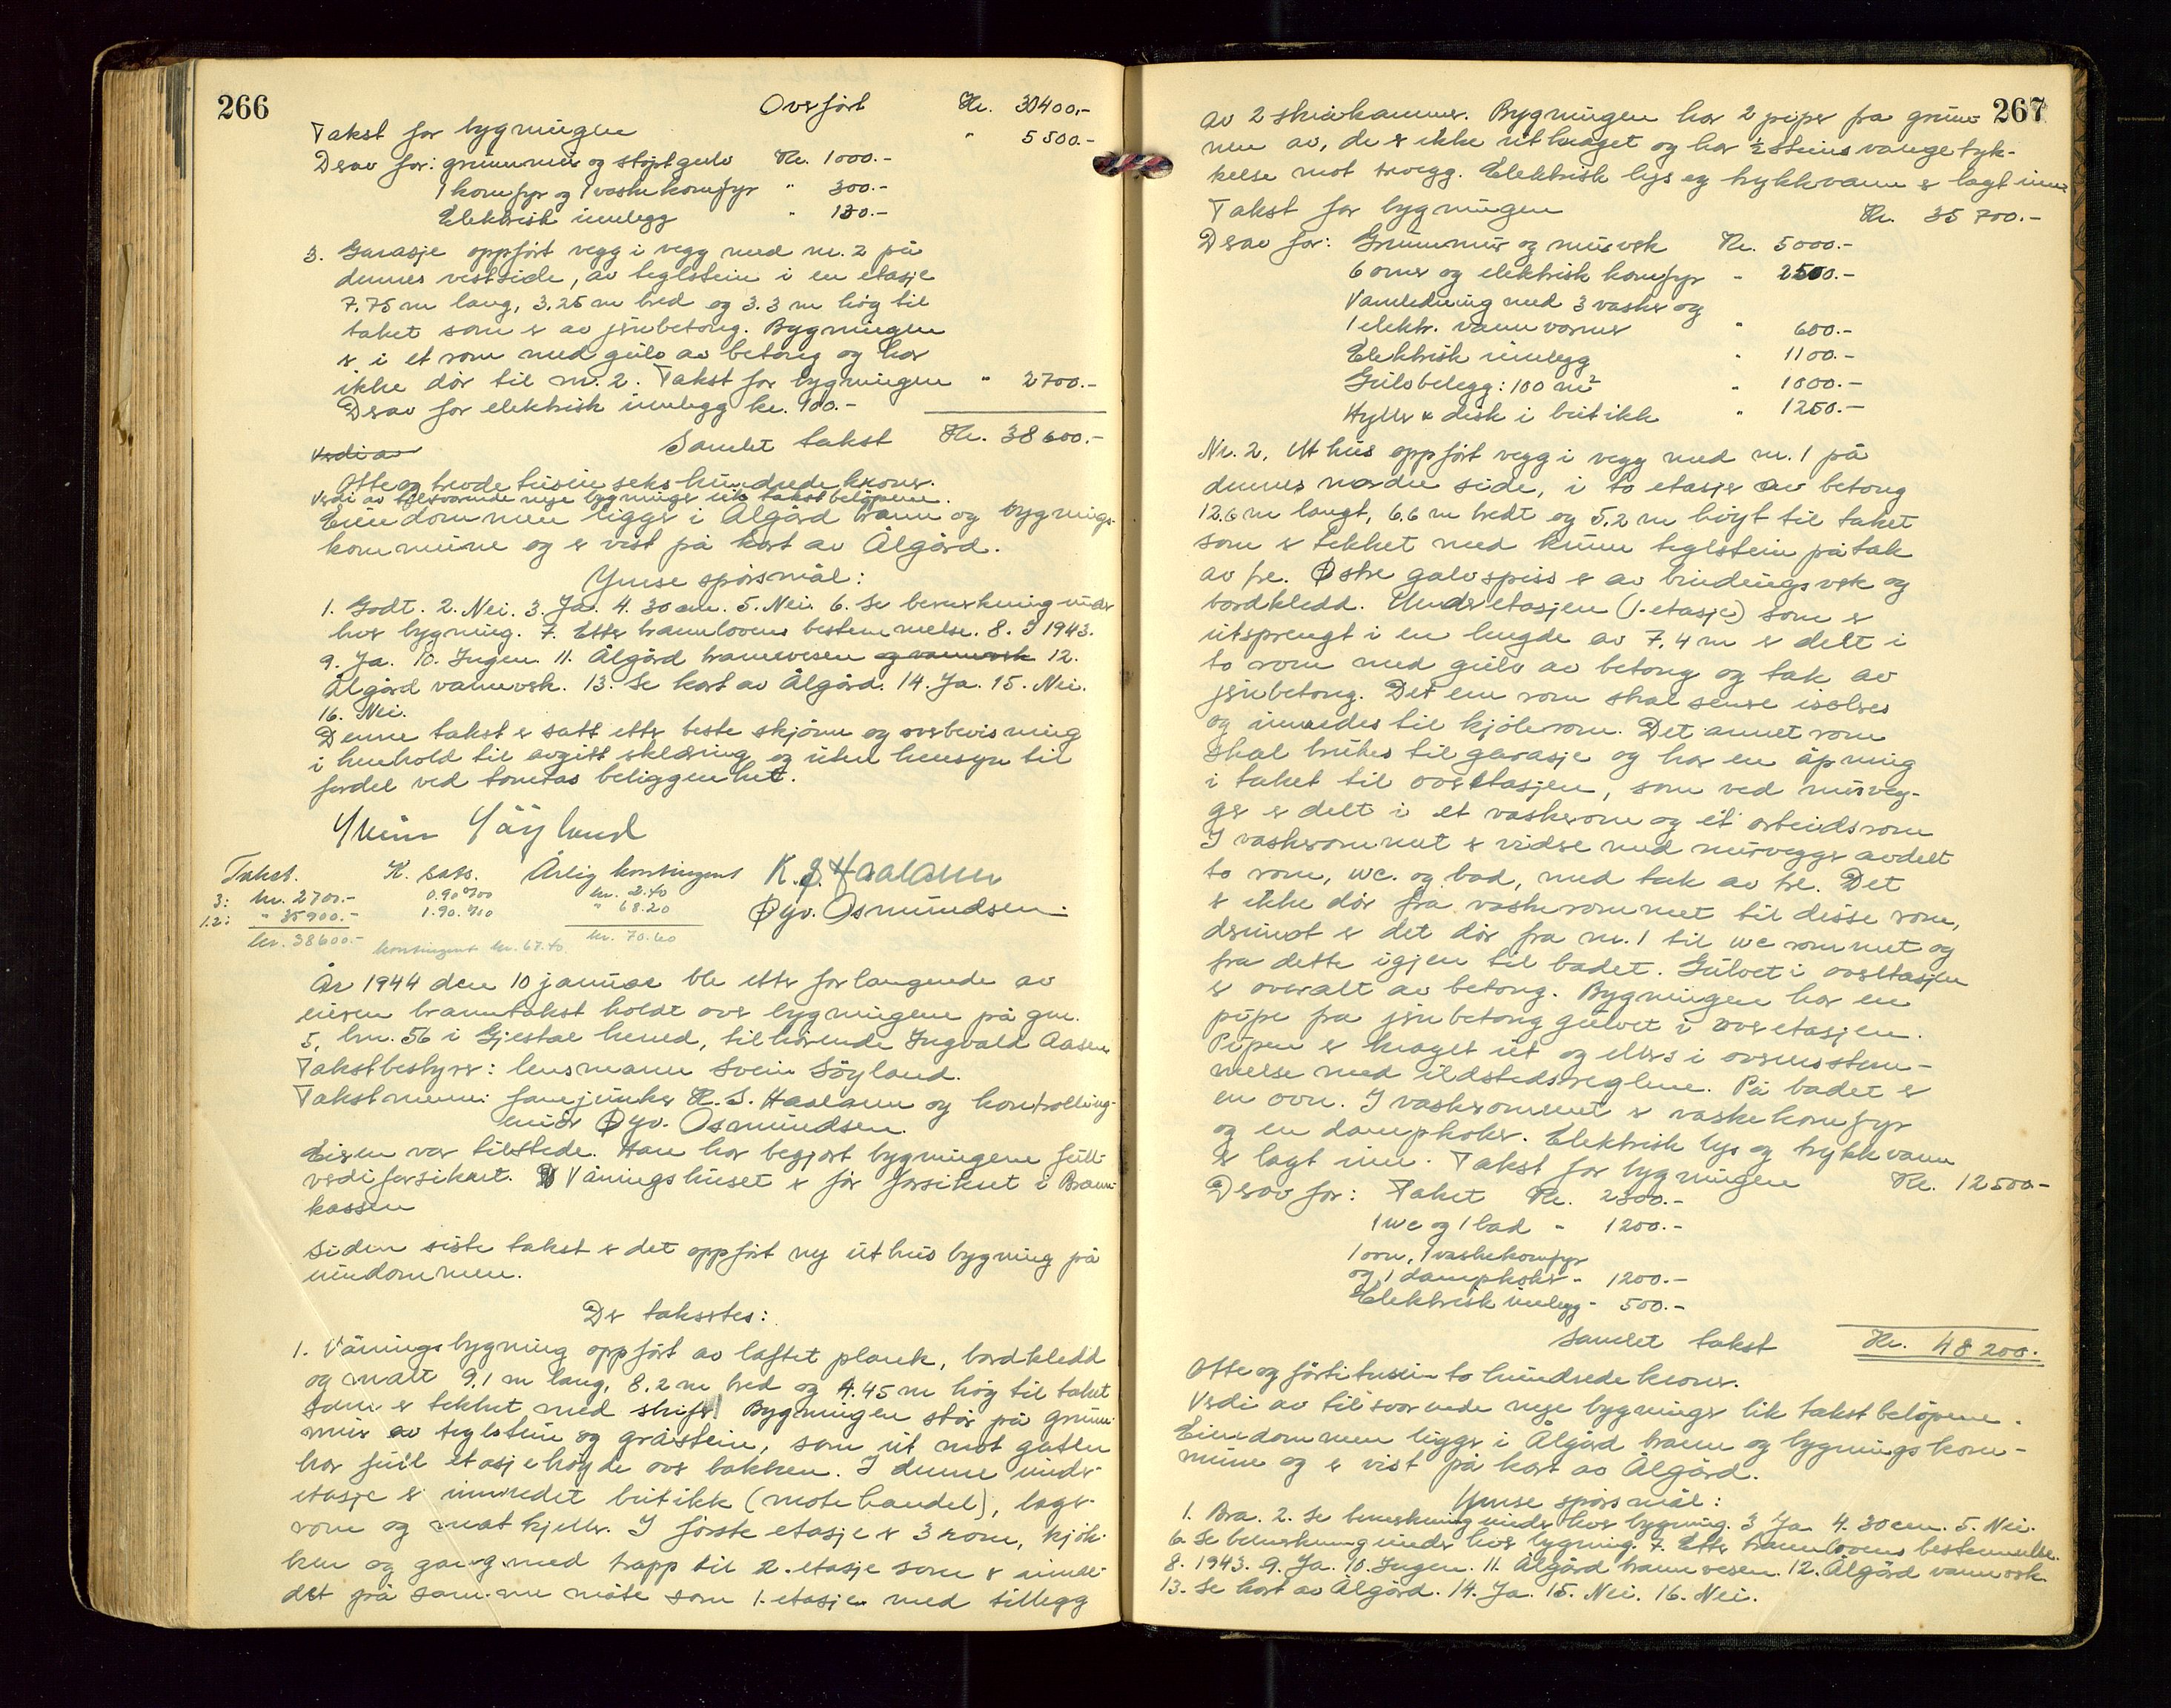 266
Overført Kr. 30400,-
Takst for bygningen " 5500.-
Derav for: grunnmur og støpt gulv Kr. 1000.-
1 komfyr og 1 vaskekomfyr " 300.-
Elektrisk innlegg " 130.-
3. Garasje oppført vegg i vegg med nr. 2 på
dennes vestside, av teglstein i en etasje
7.75 m lang, 3.25 m bred og 3.3 m høg til
taket som er av jernbetong. Bygningen
er i et rom med gulv av betong og har
ikke dør til nr. 2. Takst for bygningen " 2700.-
Derav for elektrisk innlegg kr. 100.-
Verdi av Samlet takst Kr. 38600.-
Otte og trede tusin seks hundrede kroner.
Verdi av tilsvarende nye bygninger lik takstbeløpene.
Eiendommen ligger i Ålgård brann og bygnings-
kommune og er vist på kart av Ålgård.
Ymse spørsmål:
1. Godt. 2. Nei. 3. Ja. 4. 30 cm. 5. Nei. 6. Se bemerkning under
hver bygning. 7. Etter brannlovens bestemmelse. 8. I 1943.
9. Ja. 10. Ingen. 11. Ålgård brannvesen og vannverk 12.
Ålgård vannverk. 13. Se kart av Ålgård. 14. Ja. 15. Nei.
16. Nei.
Denne takst er satt etter beste skjønn og overbevisning
i henhold til avgitt erklæring og uten hensyn til
fordel ved tomtas beliggenhet.
Svein Søyland
Takst. K. sats. Årlig kontingent K. S. Haaland
3: kr. 2700.- 0.90 ‰ kr. 2.40
1.2: " 35900.- 1.90 ‰ " 68.20 Øyv. Osmundsen.
kr. 38600.- kontingent kr. 67.40 kr. 70.60
År 1944 den 10 januar ble etter forlangende av
eieren branntakst holdt over bygningene på gnr.
5, bnr. 56 i Gjestal herred, tilhørende Ingvald Aasen
Takstbestyrer: lensmann Svein Söyland.
Takstmenn: fanejunker K. S. Haaland og kontrolling-
eniør Øyv. Osmundsen.
Eieren var tilstede. Han har begjært bygningene full-
verdiforsikret. Våningshuset er før forsikret i Brann-
kassen
Siden siste takst er det oppført ny uthusbygning på
eiendommen.
Der takseres:
1. Våningsbygning oppført av laftet plank, bordkledd
og malt 9,1 m lang, 8.2 m bred og 4.45 m høg til taket
som er tekket med skifer. Bygningen står på grunn-
mur av teglstein og gråstein, som ut mot gaten
har full etasjehøyde over bakken. I denne under-
etasje er innredet butikk (motehandel), lager-
rom og matkjeller. I første etasje er 3 rom, kjøk-
ken og gang med trapp til 2. etasje som er innre-
det på samme måte som 1. etasje med tillegg
267
av 2 skråkammer. Bygningen har 2 piper fra grun-
nen av, de er ikke utkraget og har ½ steins vangetyk-
kelse mot trevegg. Elektrisk lys og trykkvann er lagt inn.
Takst for bygningen Kr. 35 700.-
Derav for: Grunnmur og murverk Kr. 5000.-
6 ovner og elektrisk komfyr " 2500.-
Vannledning med 3 vasker og
1 elektr. vannvarmer " 600.-
Elektrisk innlegg " 1100.-
Gulvbelegg: 100 m² " 1000.-
Hyller & disk i butikk " 1250.-
Nr. 2. Uthus oppført vegg i vegg med nr. 1 på
dennes nordre side, i to etasjer av betong
12.6 m langt, 6.6 m bredt og 5.2 m høyt til taket
som er tekket med krum teglstein på tak
av tre. Østre gavlspiss er av bindingsverk og
bordkledd. Underetasjen (1. etasje) som er
utsprengt i en lengde av 7,4 m er delt i
to rom med gulv av betong og tak av
jernbetong. Det ene rom skal senere isoleres
og innredes til kjølerom. Det annet rom
skal brukes til garasje og har en åpning
i taket til overetasjen, som ved murveg-
ger er delt i et vaskerom og et arbeidsrom
I vaskerommet er videre med murvegger avdelt
to rom, wc. og bad, med tak av tre. Det
er ikke dør fra vaskerommet til disse rom,
derimot er det dör fra nr. 1 til wc rommet og
fra dette igjen til badet. Gulvet i overetasjen
er overalt av betong. Bygningen har en
pipe fra jernbetonggulvet i overetasjen.
Pipen er kraget ut og ellers i overensstem-
melse med ildstedsreglene. På badet er
en ovn. I vaskerommet er vaskekomfyr
og en dampkoker. Elektrisk lys og trykkvann
er lagt inn. Takst for bygningen Kr. 12500.-
Derav for: Taket Kr. 2300.-
1 wc og 1 bad " 1200.-
1 ovn, 1 vaskekomfyr
og 1 dampkoker " 1200.-
Elektrisk innlegg " 500.-
Samlet takst Kr. 48200.-
Otte og førti tusin to hundrede kroner.
Verdi av tilsvarende nye bygninger lik takstbeløpene.
Eiendommen ligger i Ålgård brann og bygningskom-
mune og er vist på kart av Ålgård.
Ymse spørsmål:
1. Bra. 2. Se bemerkning under hver bygning. 3 Ja. 4. 30 cm. 5. Nei.
6. Se bemerkning under hver bygning. 7. Etter brannlovens bestemmelse.
8. 1943. 9. Ja. 10. Ingen. 11. Ålgård brannvesen. 12. Ålgård vannverk.
13. Se kart av Ålgård. 14. Ja. 15. Nei. 16. Nei.